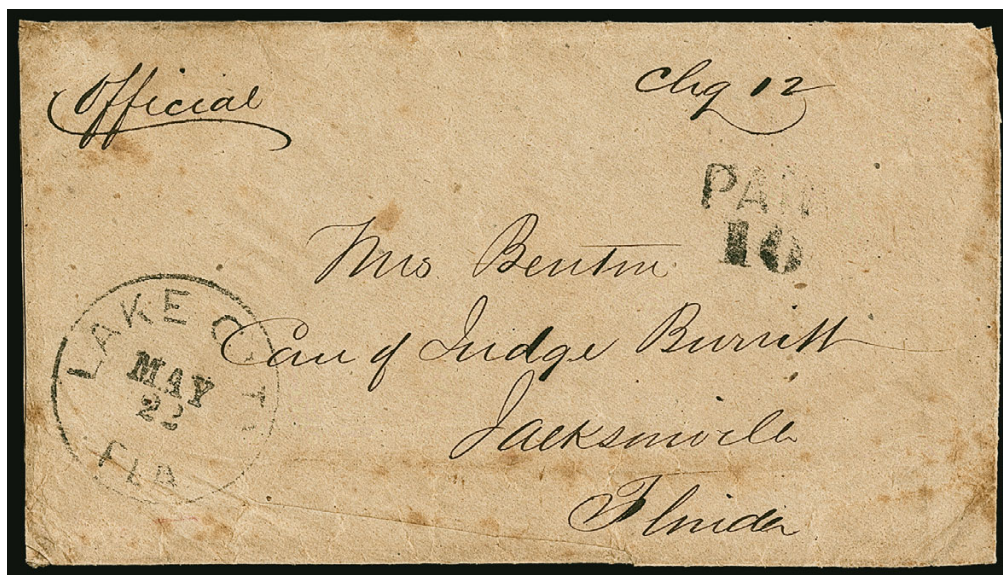 Official
chg 12
PAID
10
Mrs Benton
Care of Judge Burritt
Jacksonville
Florida
LAKE CITY
MAY
22
FLA